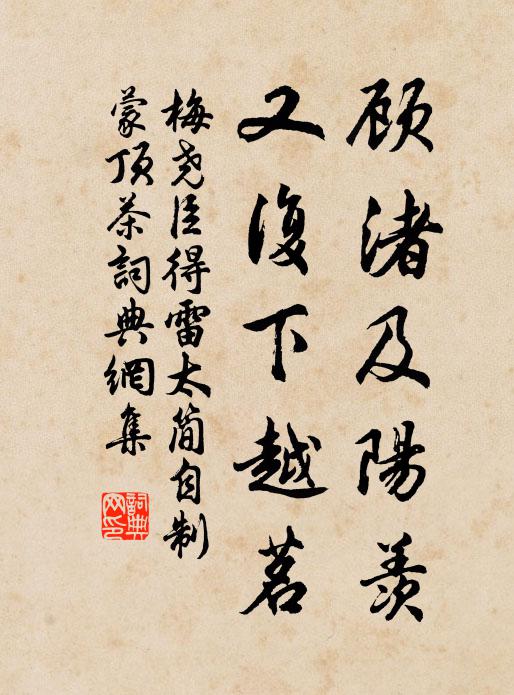 顾渚及陽羡
又復下越茗
梅尧臣得雷太简自制
蒙顶茶詞典網集
詞典网印